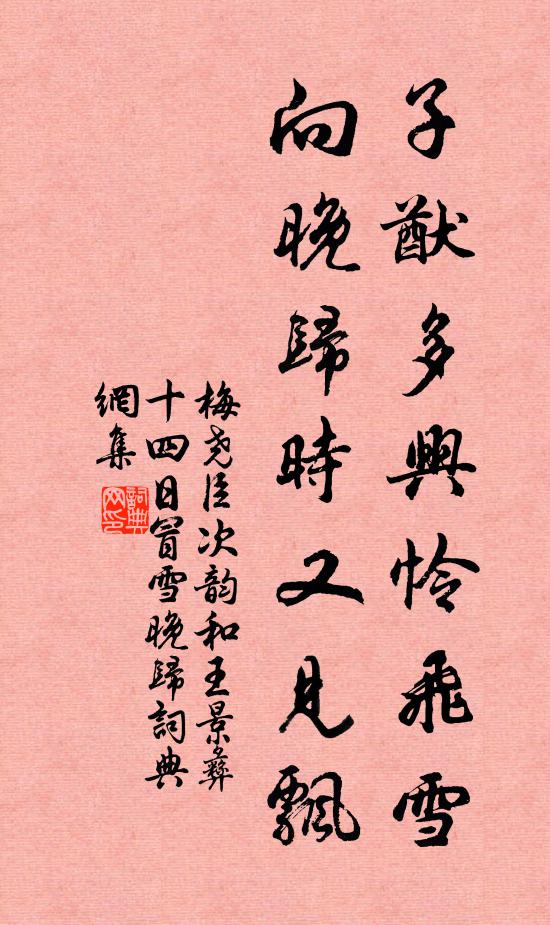 子猷多興怜飛雪
向晚歸時又見飄
梅尧臣次韵和王景彝
十四日冒雪晚歸詞典
網集
詞典
网印